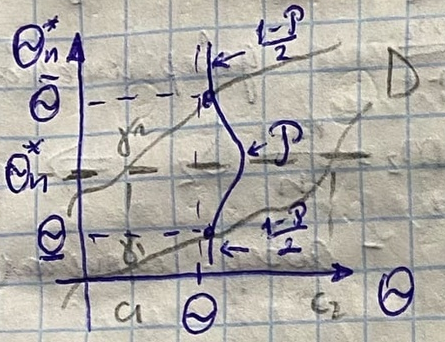 Θₙ* 1-P/2
Θ̄ D
γ₂
Θₙ* P
Θ̲ γ₁ 1-P/2
c₁ Θ c₂ Θ